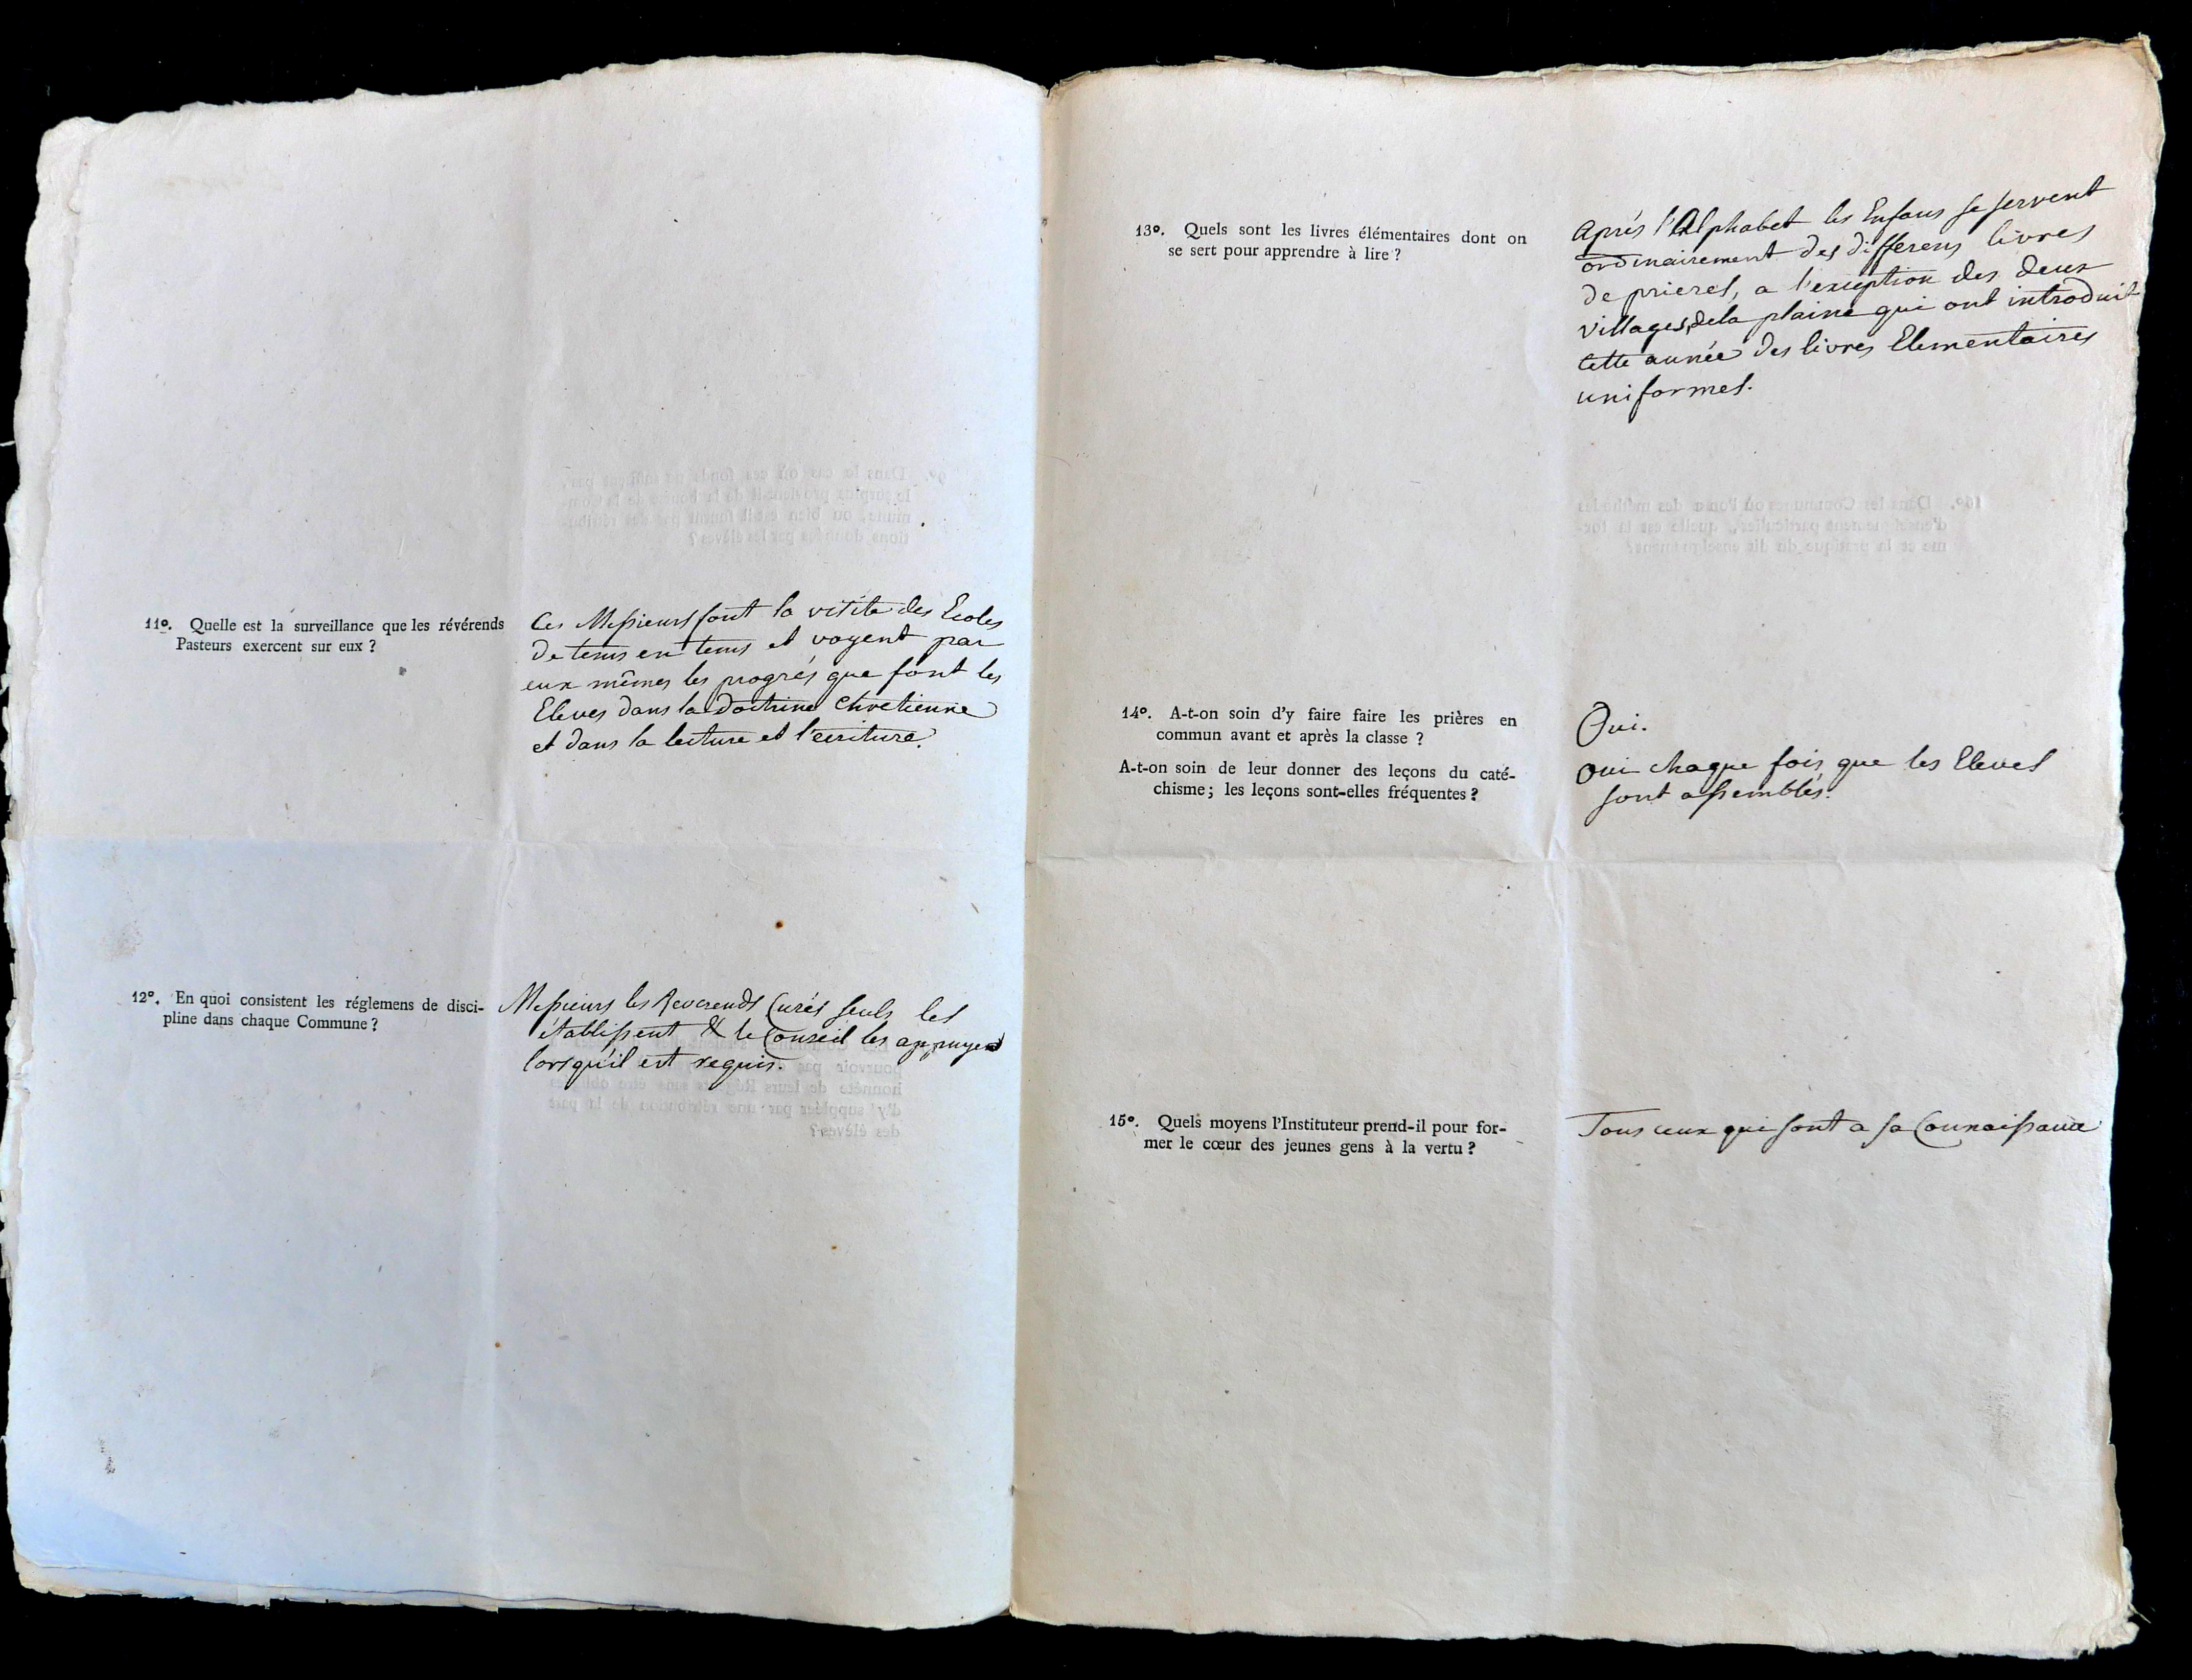 11º. Quelle est la surveillance que les révérends
Pasteurs exercent sur eux ?
Ces Messieurs font la visite des Ecoles
de tems en tems et voyent par
eux mêmes les progrés que font les
Eleves dans la doctrine Chretienne
et dans la lecture et l'ecriture.
12º. En quoi consistent les réglemens de disci-
pline dans chaque Commune ?
Messieurs les Reverends Curés seuls les
établissent & le Conseil les appuye
lorsqu'il est requis.
13º. Quels sont les livres élémentaires dont on
se sert pour apprendre à lire ?
Aprés l'Alphabet les Enfans se servent
ordinairement des differens livres
de prieres, a l'exception des deux
villages de la plaine qui ont introduit
cette année des livres Elementaires
uniformes.
14º. A-t-on soin d'y faire faire les prières en
commun avant et après la classe ?
Oui.
A-t-on soin de leur donner des leçons du caté-
chisme ; les leçons sont-elles fréquentes ?
Oui chaque fois que les Eleves
sont assemblés.
15º. Quels moyens l'Instituteur prend-il pour for-
mer le cœur des jeunes gens à la vertu ?
Tous ceux qui sont a sa Connaissance